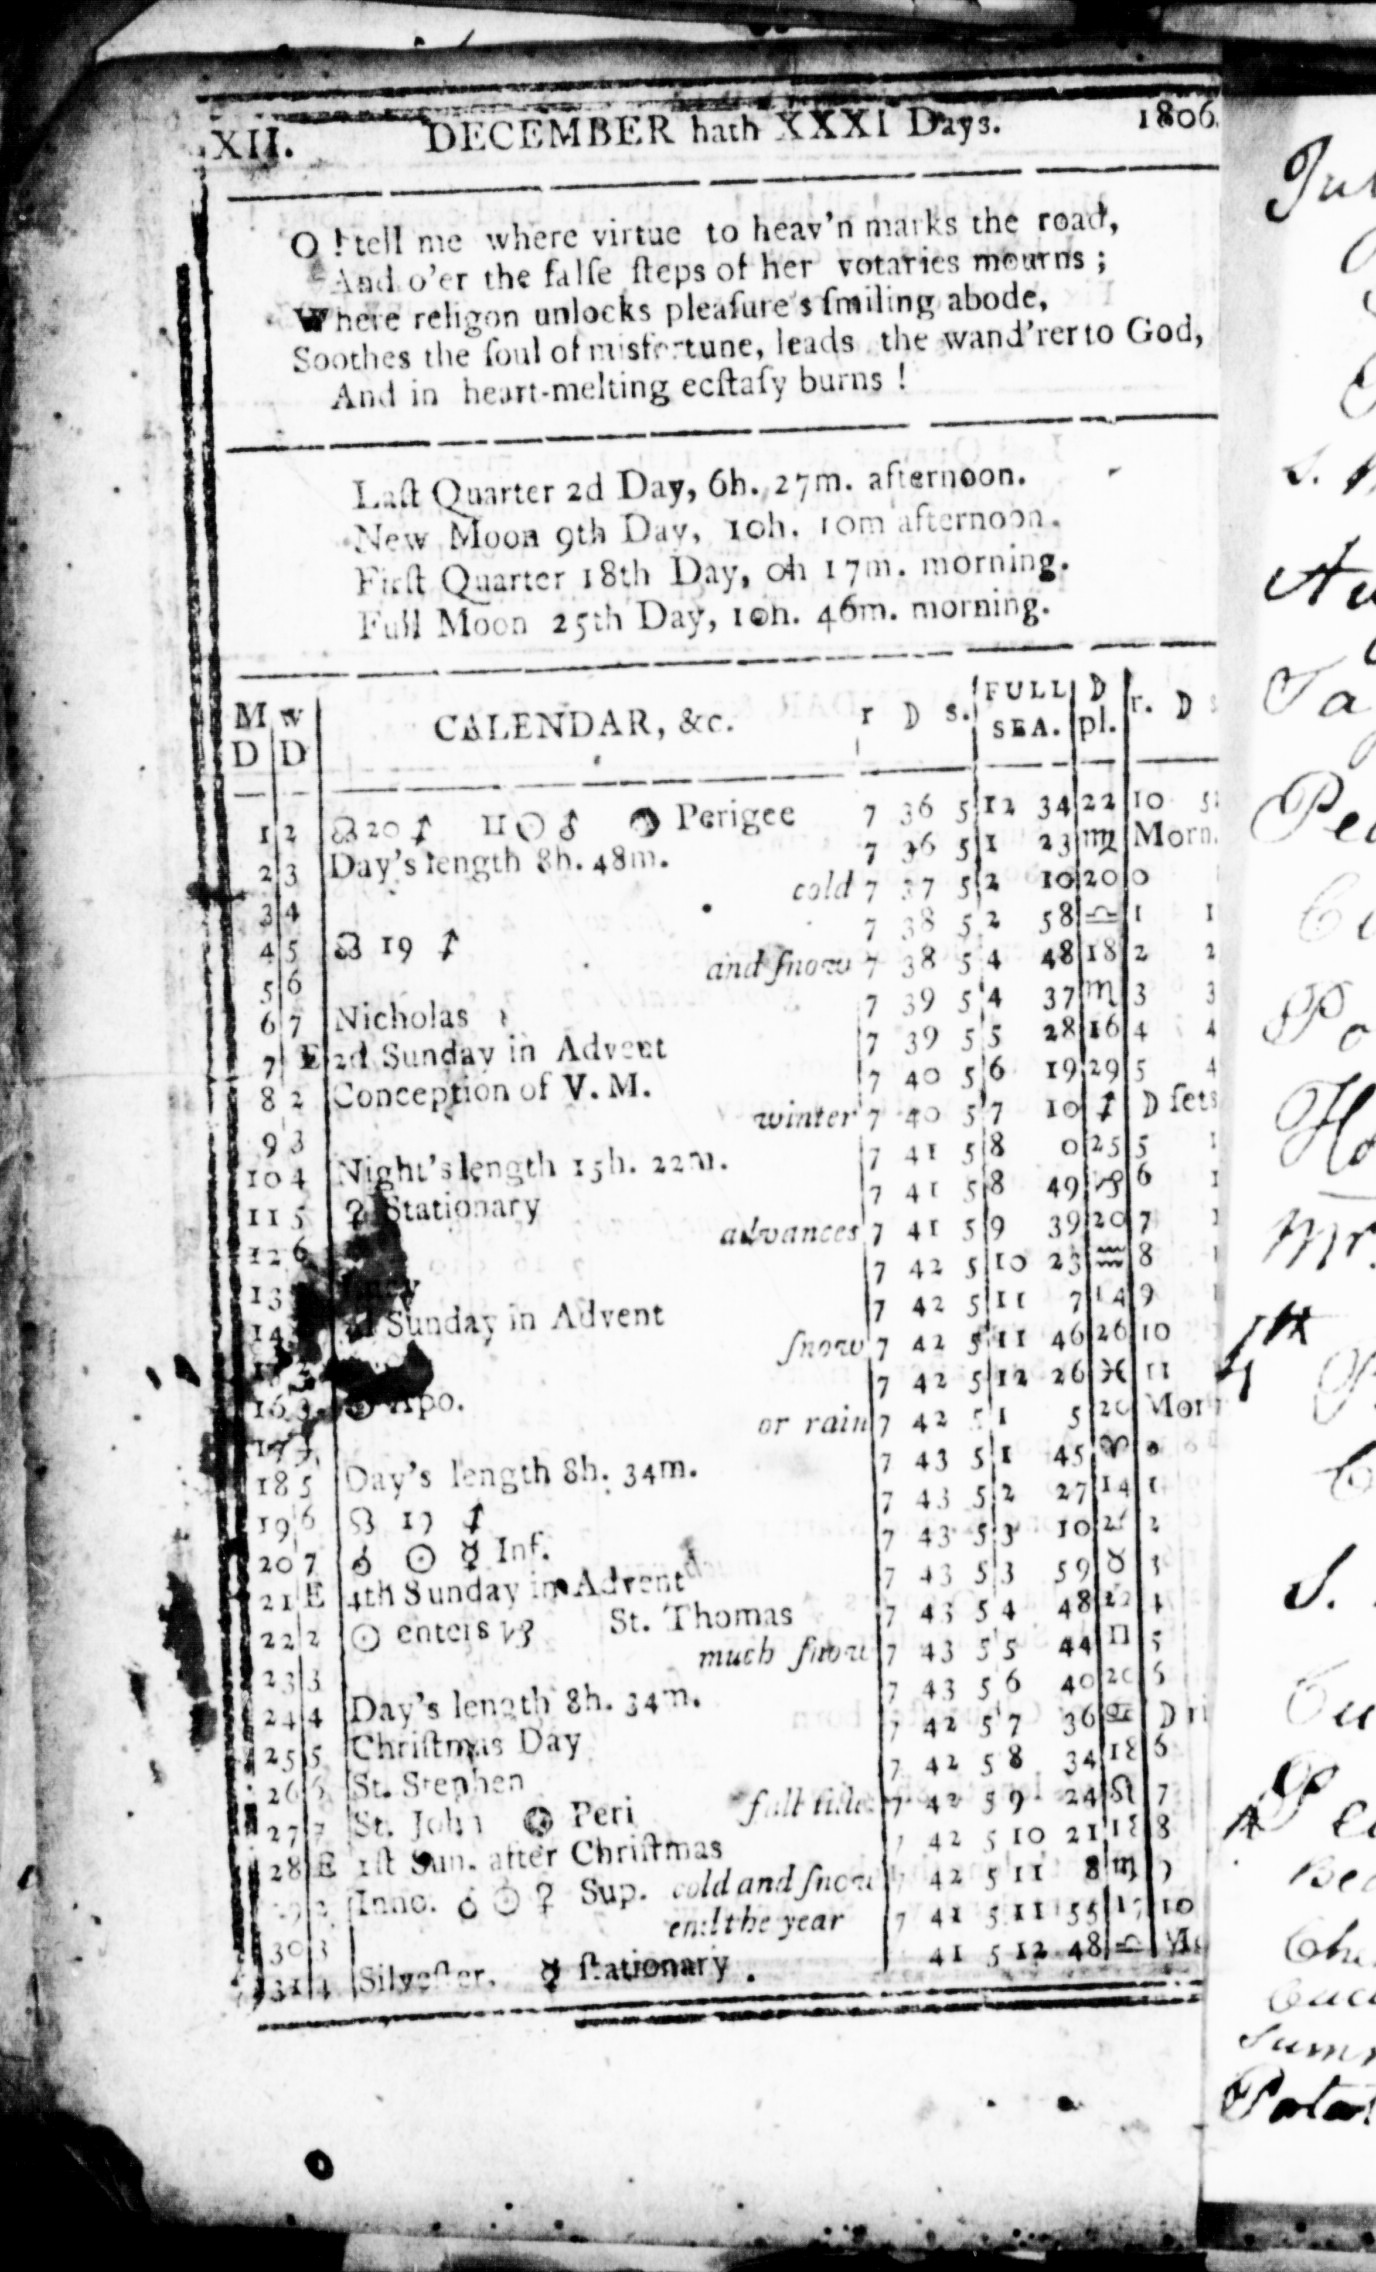 XII. DECEMBER hath XXXI Days. 1806.
O ! tell me where virtue to heav'n marks the road,
And o'er the falſe ſteps of her votaries mourns ;
Where religon unlocks pleaſure's ſmiling abode,
Soothes the ſoul of misfortune, leads the wand'rer to God,
And in heart-melting ecſtaſy burns !
Laſt Quarter 2d Day, 6h. 27m. afternoon.
New Moon 9th Day, 10h. 10m afternoon.
Firſt Quarter 18th Day, 0h 17m. morning.
Full Moon 25th Day, 10h. 46m. morning.
M D W D CALENDAR, &c. r ☽ s. FULL SEA. ☽ pl. r. ☽ s
1 2 ☊ 20 ♐ II ☉ ♂ Perigee 7 36 5 12 34 22 10
2 3 Day's length 8h. 48m. 7 36 5 1 23 ♍ Morn.
3 4 cold 7 37 5 2 10 20 0
4 5 ☊ 19 ♐ 7 38 5 2 58 ♎ 1 1
5 6 and ſnow 7 38 5 4 48 18 2 2
6 7 Nicholas 7 39 5 4 37 ♏ 3 3
7 E 2d Sunday in Advent 7 39 5 5 28 16 4 4
8 2 Conception of V. M. 7 40 5 6 19 29 5 4
9 3 winter 7 40 5 7 10 ♐ ☽ ſets
10 4 Night's length 15h. 22m. 7 41 5 8 0 25 5 1
11 5 ♀ Stationary 7 41 5 8 49 ♑ 6 1
12 6 advances 7 41 5 9 39 20 7
13 7 42 5 10 23 ♒ 8
14 Sunday in Advent 7 42 5 11 7 14 9
ſnow 7 42 5 11 46 26 10
16 3 Apo. 7 42 5 12 26 ♓ 11
17 4 or rain 7 42 5 1 5 20 Mor
18 5 Day's length 8h. 34m. 7 43 5 1 45 ♈ 0
19 6 ☊ 19 ♐ 7 43 5 2 27 14 1
20 7 ☌ ☉ ☿ Inf. 7 43 5 3 10 2
21 E 4th Sunday in Advent 7 43 5 3 59 ♉ 3
22 2 ☉ enters ♑ St. Thomas 7 43 5 4 48 22 4
23 3 much ſnow 7 43 5 5 44 ♊ 5
24 4 Day's length 8h. 34m. 7 43 5 6 40 20 6
25 5 Chriſtmas Day 7 42 5 7 36 ♋ ☽ ri
26 6 St. Stephen 7 42 5 8 34 18 6
27 7 St. John Peri full tides 7 42 5 9 24 ♌ 7
28 E 1ſt Sun. after Chriſtmas 7 42 5 10 21 18 8
29 2 Inno. ☌ ☉ ♀ Sup. cold and ſnow 7 42 5 11 8 ♍ 9
30 3 end the year 7 41 5 11 55 17 10
31 4 Silveſter. ☿ ſtationary. 41 5 12 48 ♎
Mr.
4th